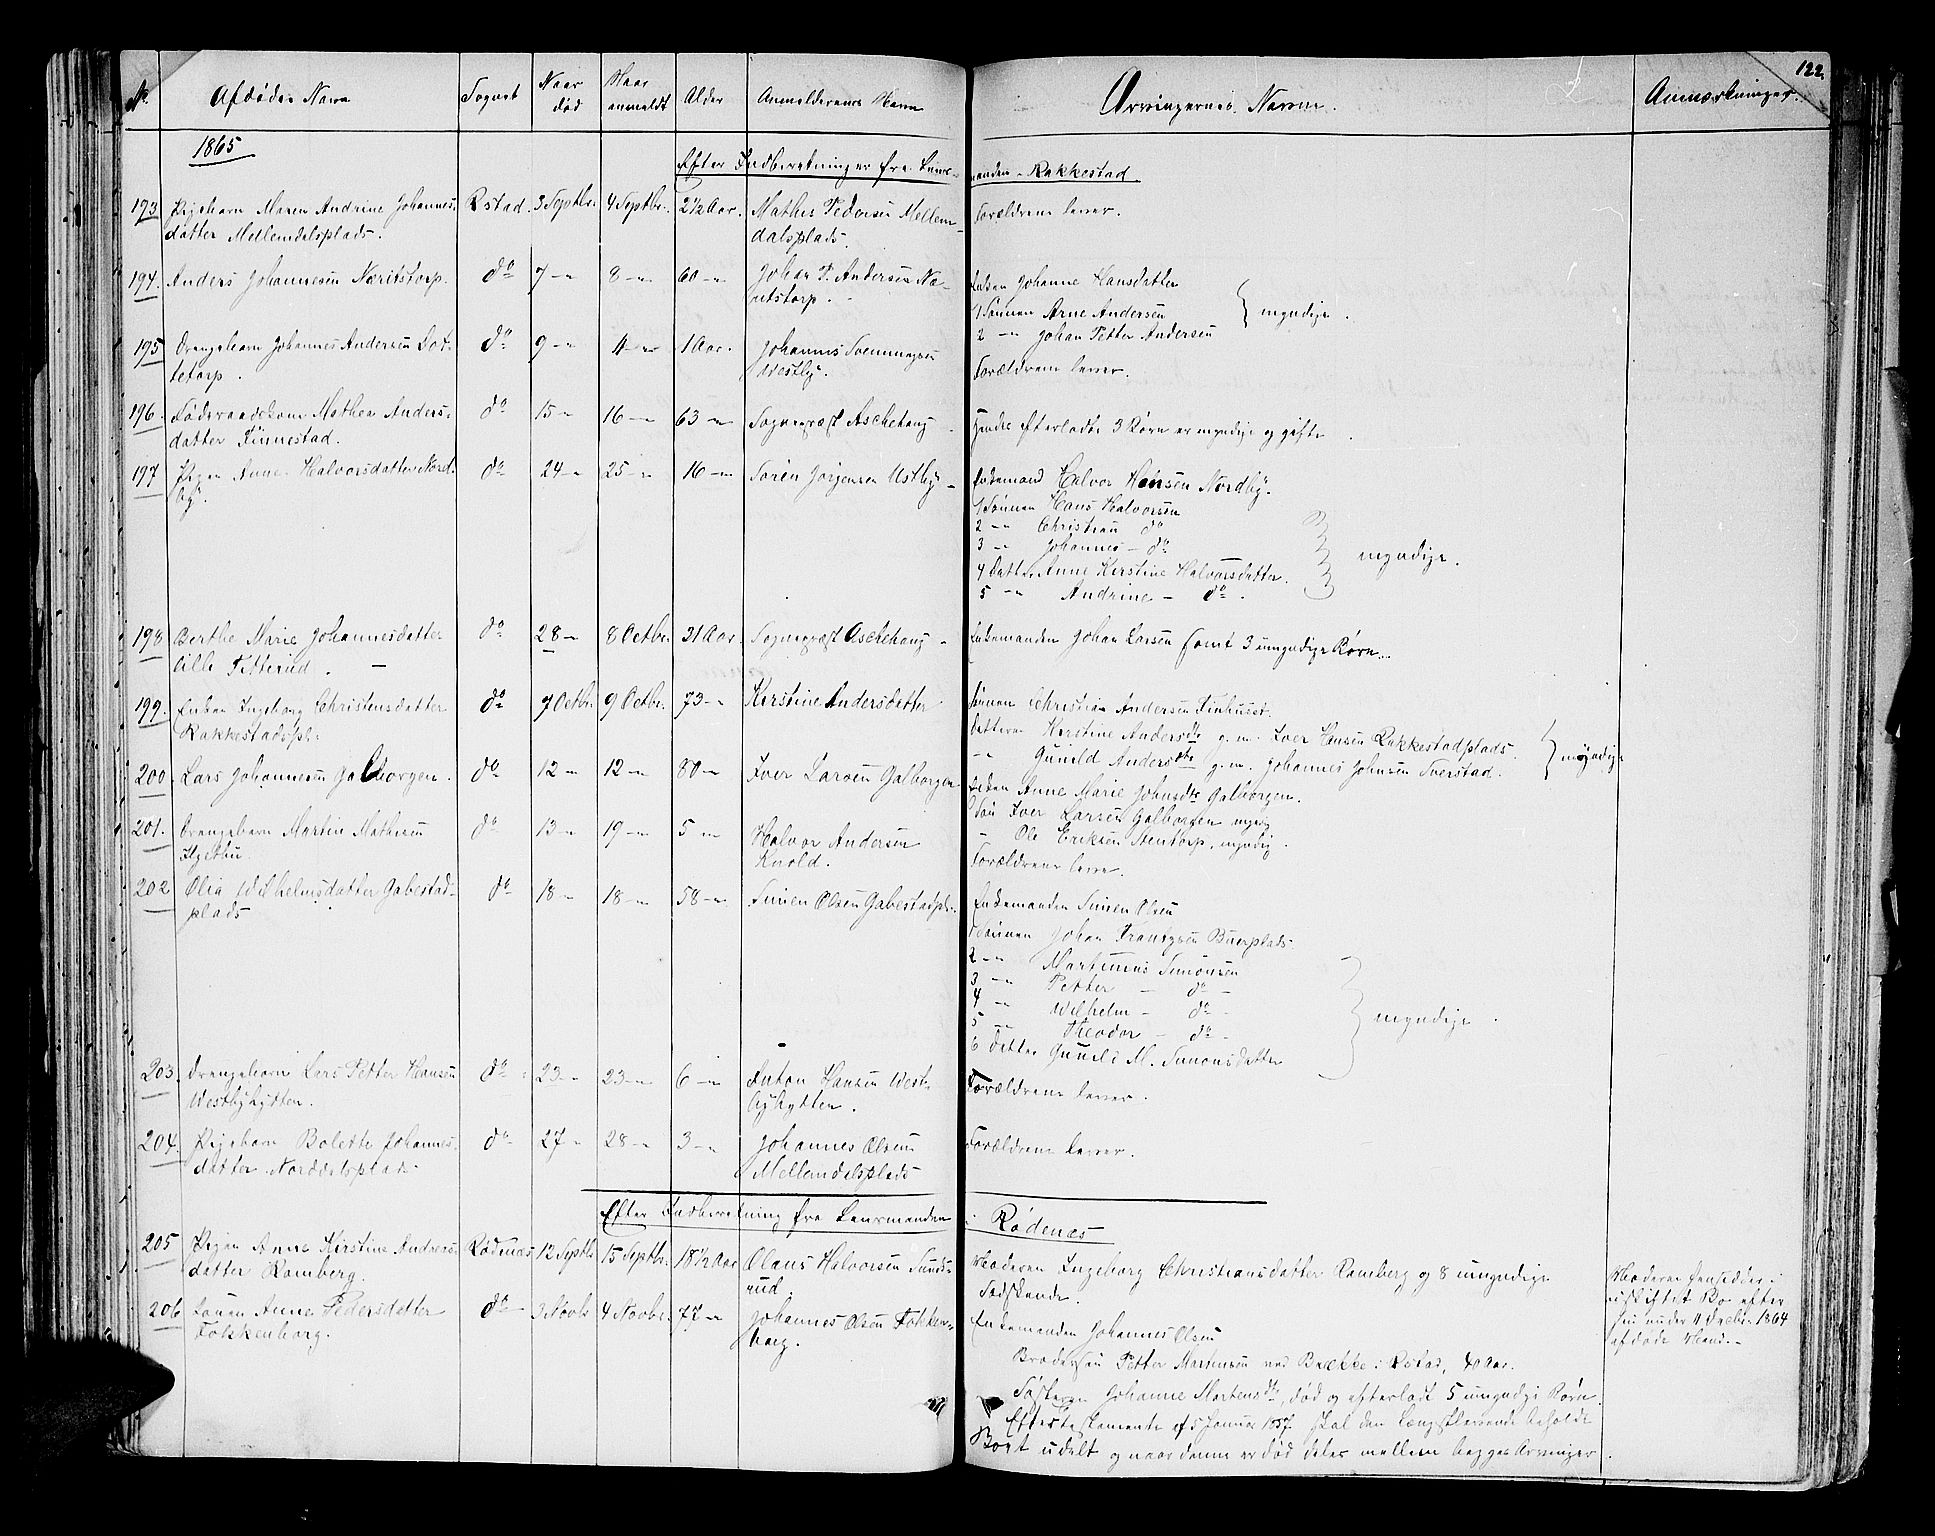 122.
No. Afdødes Navn Sognet Naar død Naar anmeldt Alder Anmelderens Navn Arvingernes Navne. Anmærkninger.
1865
Efter Indberetninger fra Lensmanden Rakkestad
193 Pigebarn Maren Andrine Johannes- Rstad. 3 Septbr. 4 Septbr. 2½ Aar. Mathis Pedersen Mellem- Forældrene lever.
datter Mellemdalsplads. dalsplads.
194. Anders Johannesen Næritstorp. do 7 -"- 8 -"- 60 -"- Johan P. Andersen Næ- Enken Johanne Hansdatter
ritstorp. 1 Sønnen Arne Andersen myndige.
2 -"- Johan Petter Andersen
195 Drengebarn Johannes Andersen Dot- do 9 -"- 11 -"- 1 Aar. Johannes Svenningsen Forældrene lever.
tetorp. Westby.
196. Føderaadskone Mathea Anders- do 15 -"- 16 -"- 63 -"- Sognepræst Aschehoug Hendes Efterladte 3 Børn er myndige og gifte.
datter Finnestad.
197 Pigen Anne Halvorsdatter Nord- do 24 -"- 25 -"- 16 -"- Søren Jørgensen Ustby Enkemand Halvor Hansen Nordby.
by. 1 Sønnen Hans Halvorsen
2 -"- Christian do
3 -"- Johannes - do
4 Datter Anne Kirstine Halvorsdatter. myndige.
5 -"- Andrine - do.
198 Berthe Marie Johannesdatter do 28 -"- 8 Octbr. 31 Aar. Sognepræst Aschehoug Enkemanden Johan Larsen samt 3 umyndige Børn.
lille Fetterud.
199. Enken Ingeborg Christensdatter do 7 Octbr. 9 Octbr. 73 -"- Kirstine Andersdatter Sønnen Christian Andersen Finhuset.
Rakkestadspl. Datteren Kirstine Andersdtr g. m. Iver Hansen Rakkestadplads.
-"- Gunild Andersdtr g. m. Johannes Johnsen Sverstad. myndige
200 Lars Johannesen Galborgen. do 12 -"- 12 -"- 80 -"- Iver Larsen Galborgen Enken Anne Marie Johnsdtr Galborgen.
Søn Iver Larsen Galborgen myndig
- Ole Eriksen Stentorp, myndig.
201. Drengebarn Martin Mathisen do 13 -"- 19 -"- 5 -"- Halvor Andersen Forældrene lever.
Knold.
202 Olia Wilhelmsdatter Gabestad- do 18 -"- 18 -"- 58 -"- Simen Olsen Gabestadpl. Enkemanden Simen Olsen
plads 1 Sønnen Johan Frantzsen Buerplads.
2 -"- Martinius Simonsen
3 -"- Petter - do -
4 -"- Wilhelm - do - myndige.
5 -"- Theodor - do -
6 Datter Gunild M. Simonsdatter
203. Drengebarn Lars Petter Hansen do 23 -"- 23 -"- 6 -"- Anton Hansen West- Forældrene lever.
Westbyhytten. byhytten.
204. Pigebarn Bolette Johannes- do 27 -"- 28 -"- 3 -"- Johannes Olsen Forældrene lever.
datter Norddalsplads Mellemdalsplads
Efter Indberetning fra Lensmanden i Rødenæs
205 Pigen Anne Kirstine Anders- Rødenæs 12 Septbr. 15 Septbr. 18½ Aar Olaus Halvorsen Sunds- Moderen Ingeborg Christiansdatter Romberg og 8 umyndige Moderen hensidder i
datter Romberg. rud. Sødskende. uskiftet Bo efter
sin under 11 Decbr. 1864
afdøde Mand.
206 Konen Anne Pedersdatter do 3 Novbr. 4 Novbr. 77 -"- Johannes Olsen Folken- Enkemanden Johannes Olsen
Folkenborg. borg. Brodersøn Petter Martensen ved Brække i Rstad, 40 Aar.
Søsteren Johanne Martensdtr, død og efterladt 5 umyndige Børn.
Efter Testamente af 5 Januar 1857 skal den længstlevende beholde
Boet udelt og naar denne er død deles mellem begges Arvinger.